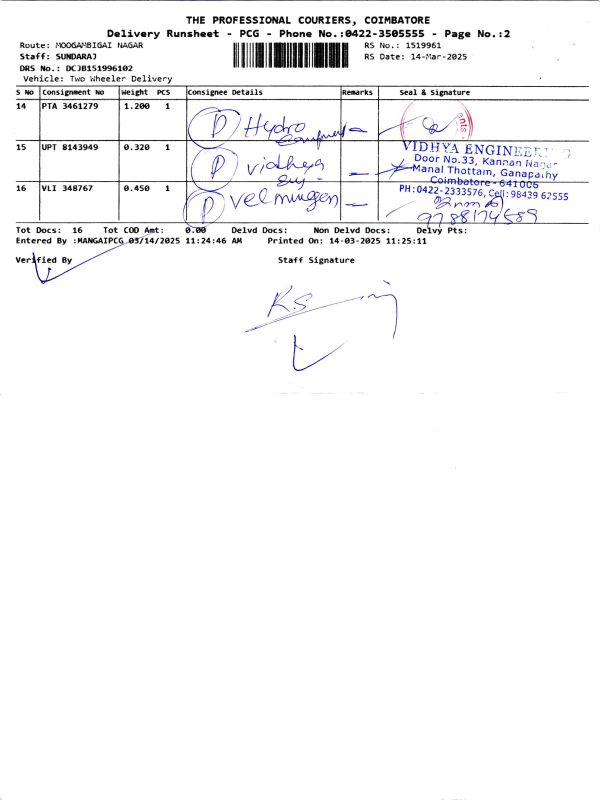 THE PROFESSIONAL COURIERS, COIMBATORE
Delivery Runsheet - PCG - Phone No.:0422-3505555 - Page No.:2
Route: MOOGAMBIGAI NAGAR RS No.: 1519961
Staff: SUNDARAJ RS Date: 14-Mar-2025
DRS No.: DCJB151996102
Vehicle: Two Wheeler Delivery
S No Consignment No Weight PCS Consignee Details Remarks Seal & Signature
14 PTA 3461279 1.200 1 D Hydro
15 UPT 8143949 0.320 1 D vidhya
VIDHYA ENGINEERING
Door No.33, Kannan Nagar
Manal Thottam, Ganapathy
Coimbatore - 641006
PH:0422-2333576, Cell:98439 62555
16 VLI 348767 0.450 1 D velmurugan
9788174589
Tot Docs: 16 Tot COD Amt: 0.00 Delvd Docs: Non Delvd Docs: Delvy Pts:
Entered By :MANGAIPCG 03/14/2025 11:24:46 AM Printed On: 14-03-2025 11:25:11
Verified By Staff Signature
KS